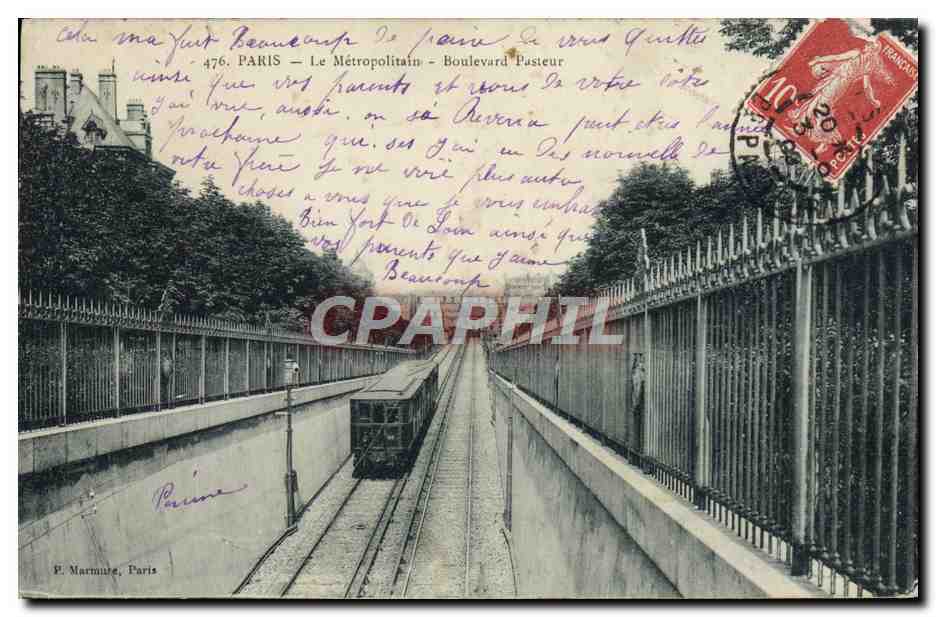 Cela ma fait Beaucoup de peine de vous quitter
476. PARIS — Le Métropolitain - Boulevard Pasteur
ainsi que vos parents et nous de votre
J'ai vue, aussi, on sé Reveria peut etre l'année
prochaine qui. ses j'ai eu des nouvelle de
frère Je ne voie plus auto
choses a vous que je vous embrasse
Bien fort De Loin ainsi que
vos parents que J'aime
Beaucoup
CPAPHIL
10
POSTES
FRANÇAISE
20
PARIS
P. Marmuse, Paris